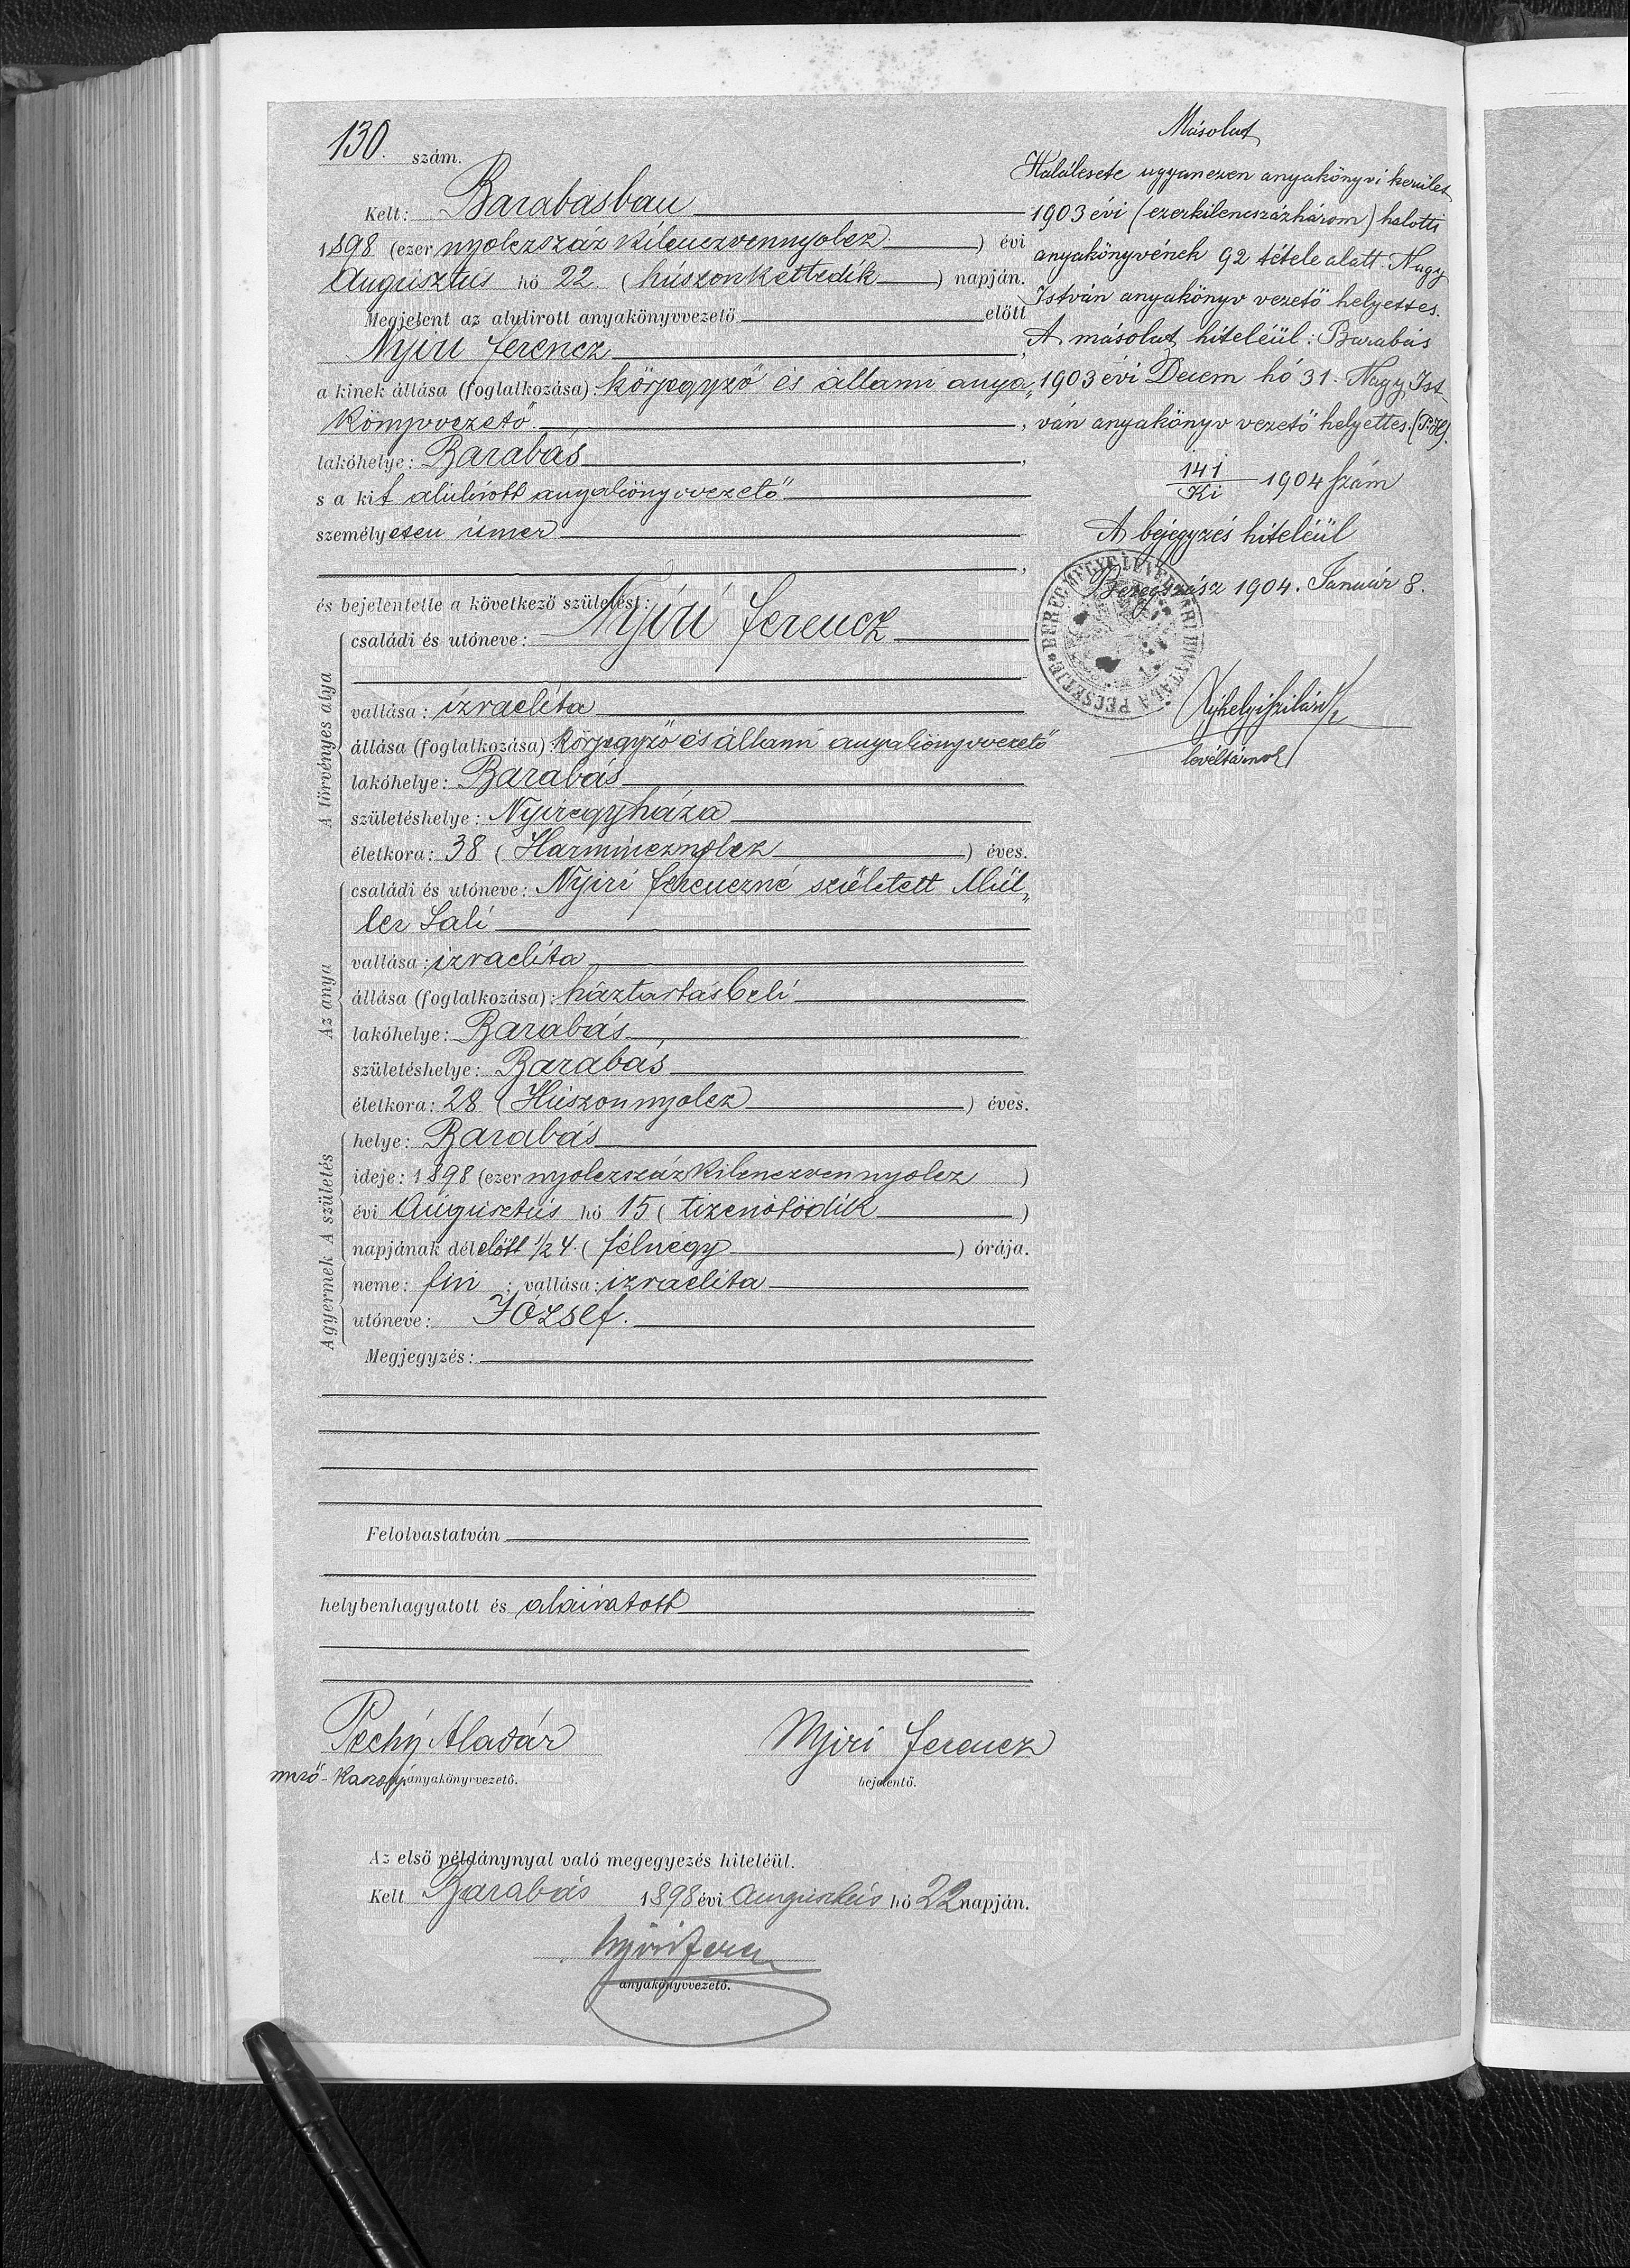 130. szám.
Kelt: Barabásban
1898 (ezer nyolczszáz kilenczvennyolcz) évi
Augusztus hó 22. (húszonkettedik) napján.
Megjelent az alulirott anyakönyvvezető előtt
Nyíri Ferencz,
a kinek állása (foglalkozása): körjegyző és állami anya„
könyvvezető,
lakóhelye: Barabás,
s a kit alulirott anyakönyvvezető
személyesen ismer,
és bejelentette a következő születést:
A törvényes atya
családi és utóneve: Nyíri Ferencz
vallása: izraelita
állása (foglalkozása) körjegyző és állami anyakönyvvezető
lakóhelye: Barabás
születéshelye: Nyiregyháza
életkora: 38 (Harmincznyolcz) éves.
Az anya
családi és utóneve: Nyiri Ferenczné született Mül„
ler Sali
vallása: izraelita
állása (foglalkozása): háztartásbeli
lakóhelye: Barabás
születéshelye: Barabás
életkora: 28 (Húszonnyolcz) éves.
A születés
helye: Barabás
ideje: 1898 (ezer nyolczszáz kilenczvennyolcz)
évi Augusztus hó 15 (tizenötödik)
napjának délelőtt 1/2 4. (félnégy) órája.
A gyermek
neme: fiú; vallása: izraelita
utóneve: József.
Megjegyzés:
Felolvastatván
helybenhagyatott és aláiratott
Pechy Aladár
anyakönyvvezető.
Nyiri Ferencz
bejelentő.
Az első példánynyal való megegyezés hiteléül.
Kelt Barabás 1898 évi Augusztus hó 22 napján.
Nyiri Ferencz
anyakönyvvezető.
Másolat
Halálesete ugyanezen anyakönyvi kerület
1903 évi (ezerkilenczszázhárom) halotti
anyakönyvének 92 tétele alatt. Nagy
István anyakönyv vezető helyettes.
A másolat hiteléül: Barabás
1903 évi Decem hó 31. Nagy Ist-
ván anyakönyv vezető helyettes. (P.H).
141
Ki 1904 szám
A bejegyzés hiteléül
Beregszász 1904. Január 8.
BEREGMEGYE LEVÉLTÁRI HIVATALA PECSETJE
levéltárnok